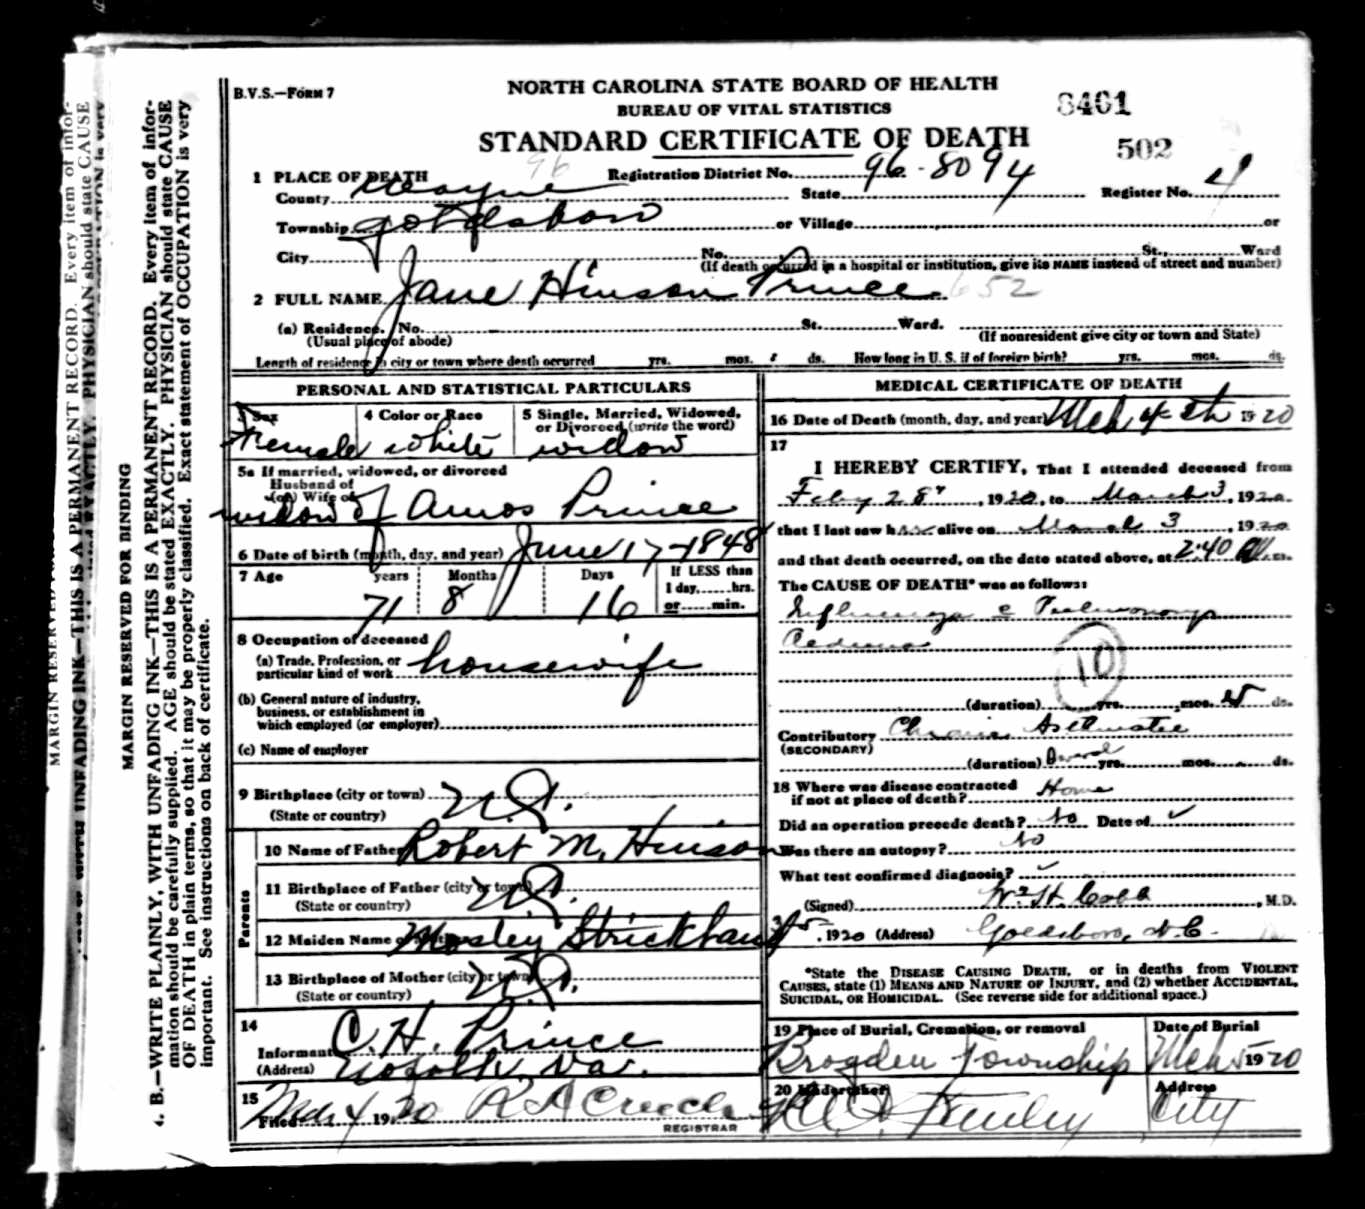 B.V.S.—FORM 7
NORTH CAROLINA STATE BOARD OF HEALTH
BUREAU OF VITAL STATISTICS
STANDARD CERTIFICATE OF DEATH
8461
502
96
1 PLACE OF DEATH
Registration District No. 96-8094
County Wayne State Register No. 4
Township Goldsboro or Village or
City No. St., Ward
(If death occurred in a hospital or institution, give its NAME instead of street and number)
2 FULL NAME Jane Hinson Prince 652
(a) Residence. No. St. Ward.
(Usual place of abode) (If nonresident give city or town and State)
Length of residence in city or town where death occurred yrs. mos. ds. How long in U. S. if of foreign birth? yrs. mos. ds.
PERSONAL AND STATISTICAL PARTICULARS
3 Sex 4 Color or Race 5 Single, Married, Widowed, or Divorced (write the word)
Female white widow
5a If married, widowed, or divorced
Husband of
(or) Wife of
widow of Amos Prince
6 Date of birth (month, day, and year) June 17-1848
7 Age years Months Days If LESS than
1 day,......hrs.
or......min.
71 8 16
8 Occupation of deceased
(a) Trade, Profession, or
particular kind of work housewife
(b) General nature of industry,
business, or establishment in
which employed (or employer)
(c) Name of employer
9 Birthplace (city or town) N.C.
(State or country)
Parents
10 Name of Father Robert M. Hinson
11 Birthplace of Father (city or town) N.C.
(State or country)
12 Maiden Name of Mother Mosley Strickland
13 Birthplace of Mother (city or town) N.C.
(State or country)
14
Informant C. H. Prince
(Address) Norfolk, Va.
15
Filed Mch 4 1920
REGISTRAR
MEDICAL CERTIFICATE OF DEATH
16 Date of Death (month, day, and year) Mch 4th 1920
17
I HEREBY CERTIFY, That I attended deceased from
Feby 28", 1920, to March 3, 1920
that I last saw her alive on March 3, 1920
and that death occurred, on the date stated above, at 2:40 m.
The CAUSE OF DEATH* was as follows:
Influenza c Pulmonary
Oedema
10
(duration) yrs. mos. ds.
Contributory Chronic Asthmatic
(SECONDARY)
(duration) Several yrs. mos. ds.
18 Where was disease contracted
if not at place of death? Home
Did an operation precede death? No Date of ✓
Was there an autopsy? No
What test confirmed diagnosis? ✓
(Signed) Wm H. Cobb, M.D.
3/5, 1920 (Address) Goldsboro, N.C.
*State the DISEASE CAUSING DEATH, or in deaths from VIOLENT
CAUSES, state (1) MEANS AND NATURE OF INJURY, and (2) whether ACCIDENTAL,
SUICIDAL, OR HOMICIDAL. (See reverse side for additional space.)
19 Place of Burial, Cremation, or removal Date of Burial
Brogden Township Mch 5 1920
20 Undertaker Address
City
MARGIN RESERVED FOR BINDING
N. B.—WRITE PLAINLY, WITH UNFADING INK—THIS IS A PERMANENT RECORD. Every item of infor-
mation should be carefully supplied. AGE should be stated EXACTLY. PHYSICIAN should state CAUSE
OF DEATH in plain terms, so that it may be properly classified. Exact statement of OCCUPATION is very
important. See instructions on back of certificate.